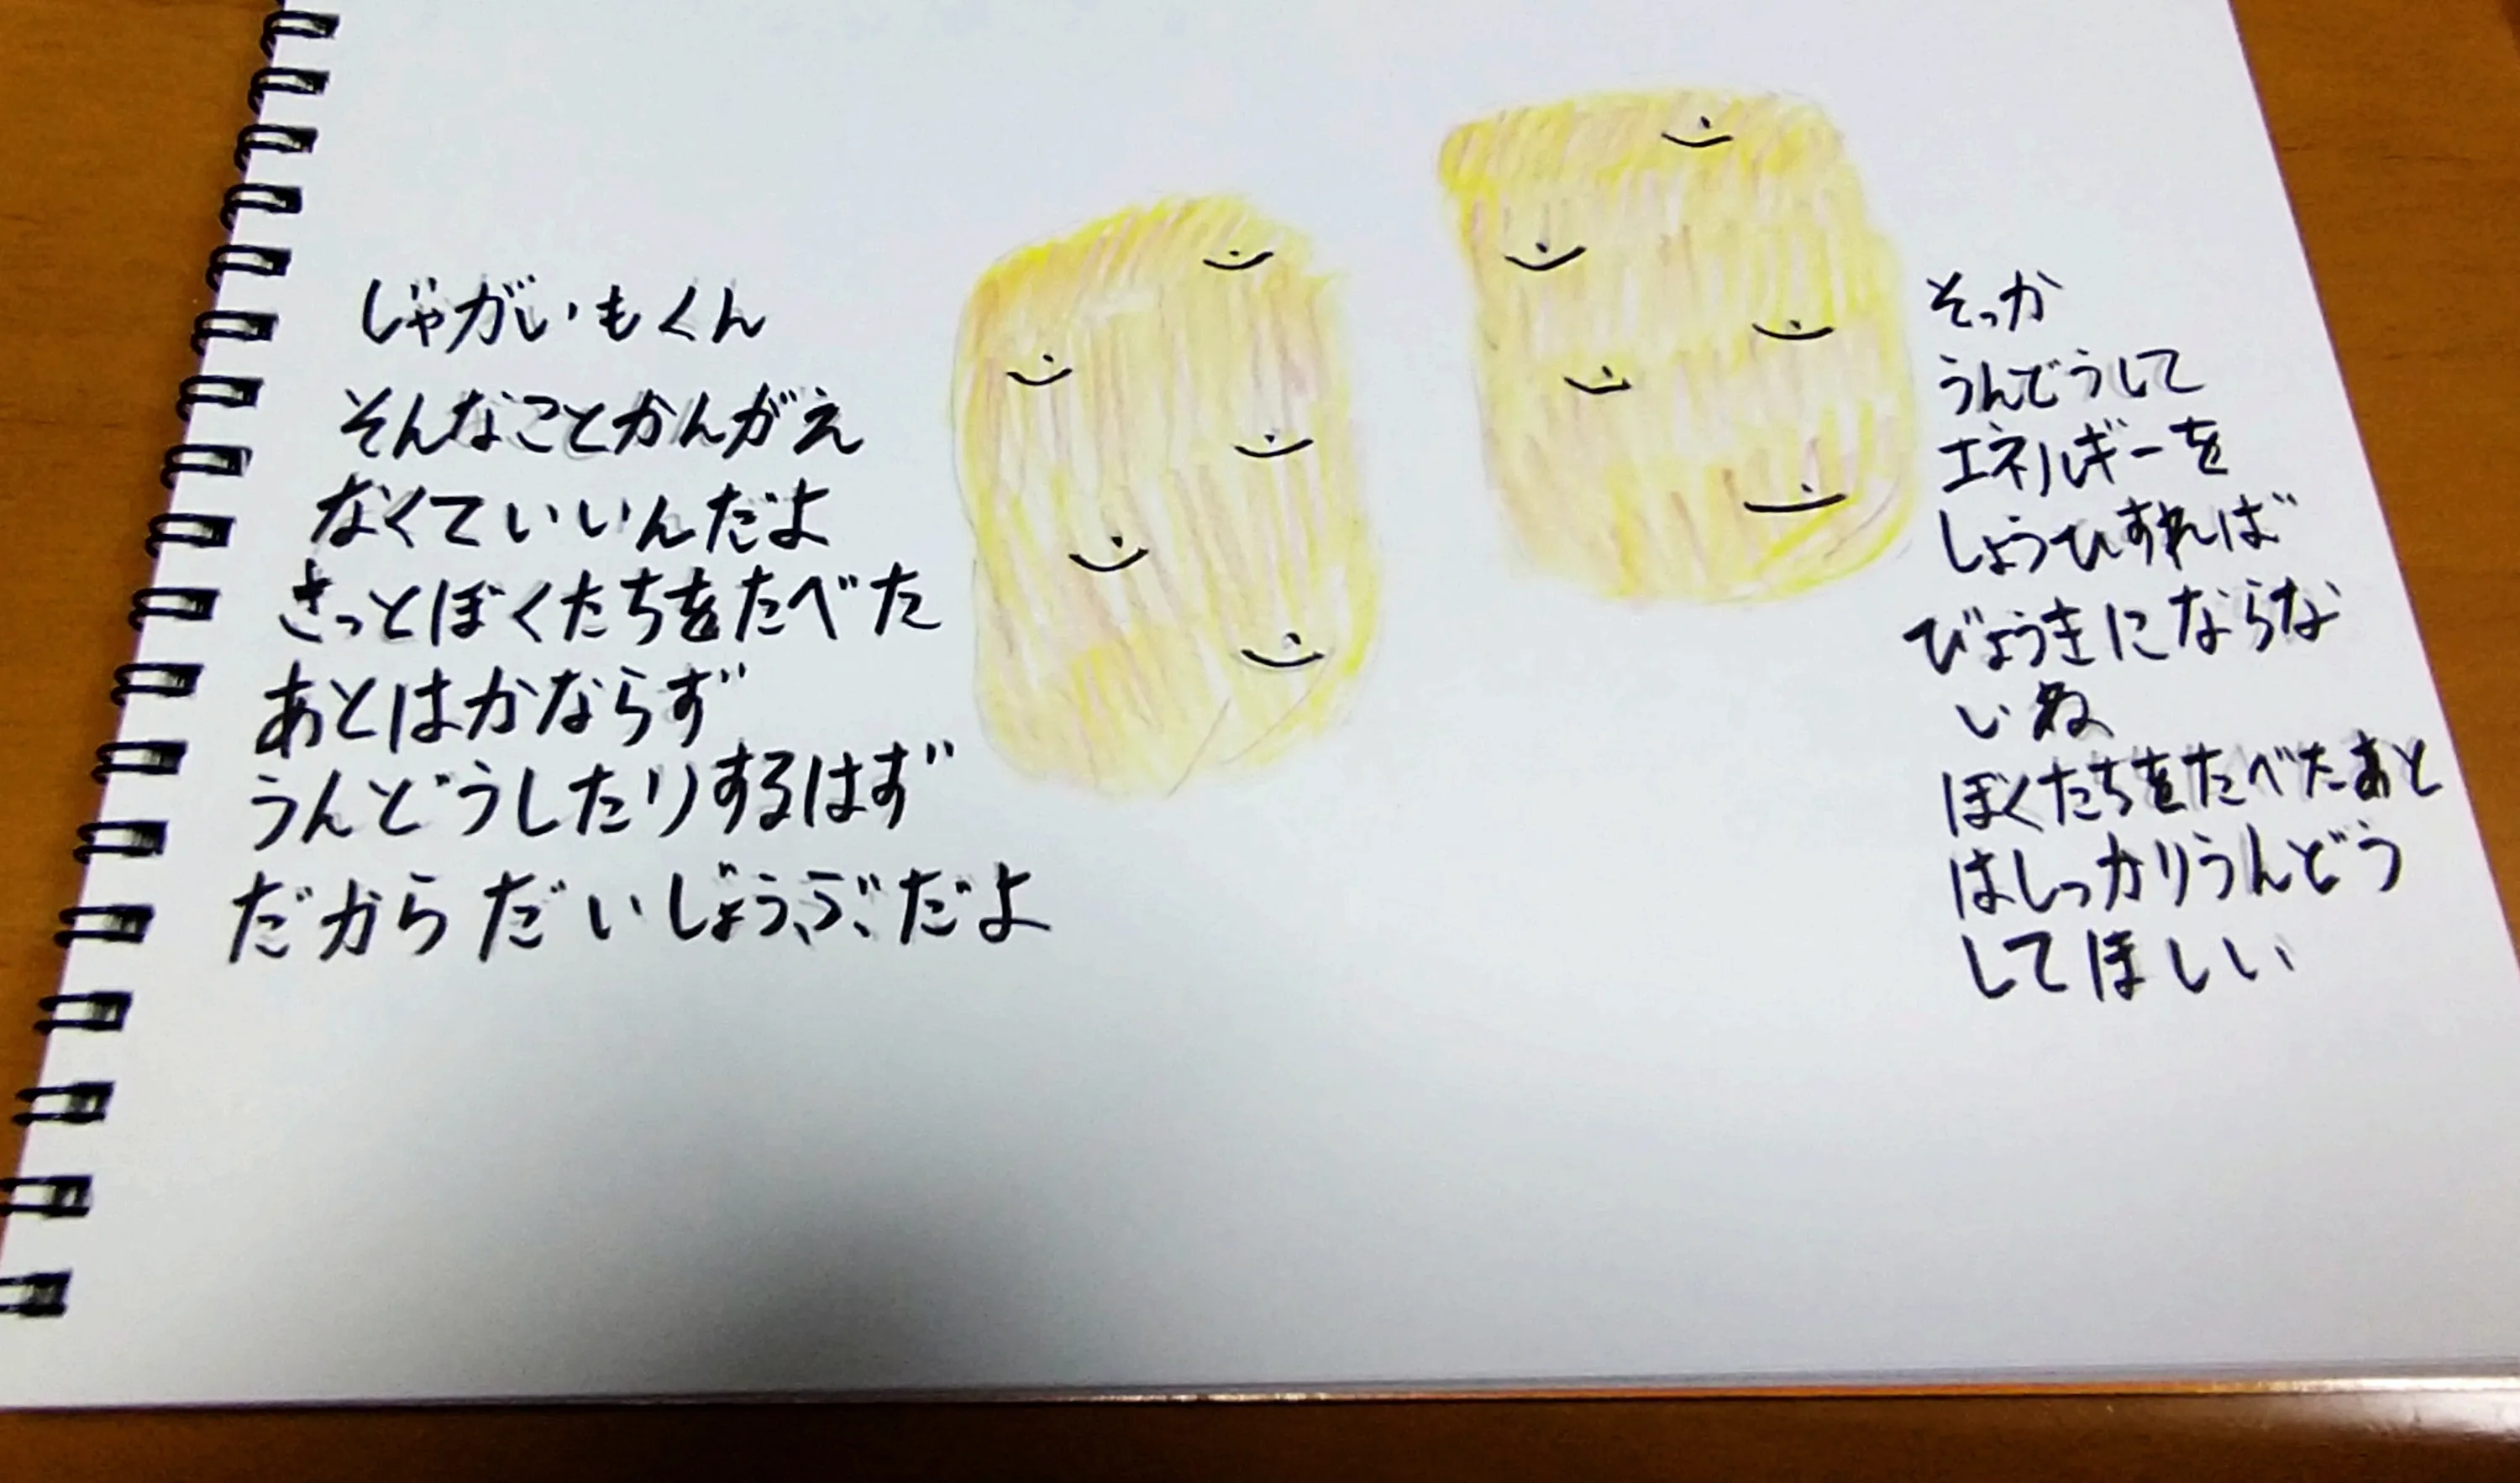 じゃがいもくん
そんなことかんがえ
なくていいんだよ
きっとぼくたちをたべた
あとはかならず
うんどうしたりするはず
だからだいじょうぶだよ
そっか
うんどうして
エネルギーを
しょうひすれば
びょうきにならな
いね
ぼくたちをたべたあと
はしっかりうんどう
してほしい